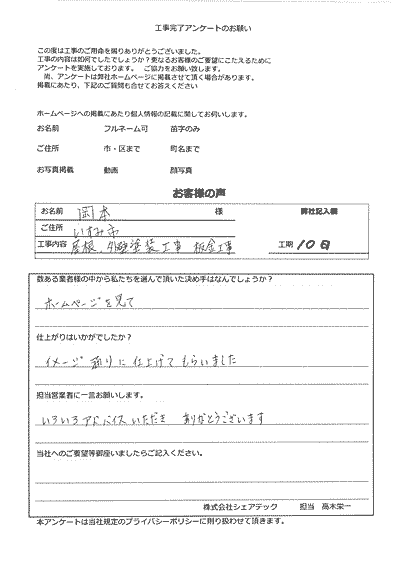 工事完了アンケートのお願い
この度は工事のご用命を賜りありがとうございました。
工事の内容は如何でしたでしょうか？更なるお客様のご要望にこたえるために
アンケートを実施しております。 ご協力をお願い致します。
尚、アンケートは弊社ホームページに掲載させて頂く場合があります。
掲載にあたり、下記のご質問も合せてお答えください
ホームページへの掲載にあたり個人情報の記載に関してお伺いします。
お名前 フルネーム可 苗字のみ
ご住所 市・区まで 町名まで
お写真掲載 動画 顔写真
お客様の声
お名前 岡本 様 弊社記入欄
ご住所 いすみ市
工事内容 屋根、外壁塗装工事 板金工事 工期 10日
数ある業者様の中から私たちを選んで頂いた決め手はなんでしょうか？
ホームページを見て
仕上がりはいかがでしたか？
イメージ通りに仕上げてもらいました
担当営業者に一言お願いします。
いろいろアドバイスいただき ありがとうございます
当社へのご要望等御座いましたらご記入ください。
株式会社シェアテック 担当 高木栄一
本アンケートは当社規定のプライバシーポリシーに則り扱わせて頂きます。